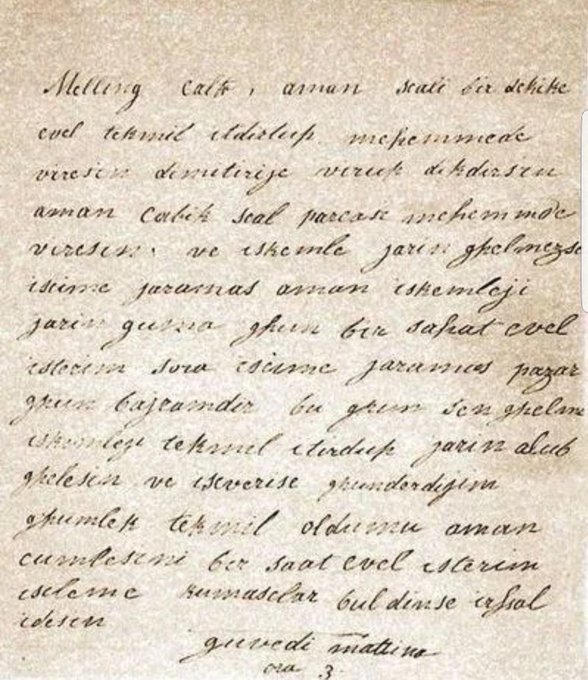 Melling calfa, aman scali bir dekike
evel tekmil itdirtup mehemmede
viresin dimitirije virup dikdirsin
aman cabik scal parcase mehemmede
viresin. ve iskemle jarin ghelmezse
iscime jaramas aman iskemleji
jarin guma ghun bir sahat evel
isterim sora iscime jaramas pazar
ghun bajramdir bu ghun sen ghelme
iskemleji tekmil itirdup jarin alub
ghelesin ve iseverise ghunderdijim
ghumlek tekmil oldumu aman
cumlesini bir saat evel isterim
isileme kumasclar buldinse irsal
idesin
giuvedi mattina
ora 3.